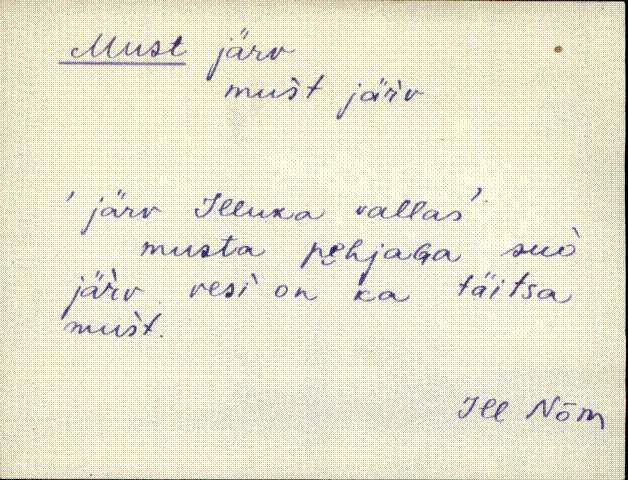 Must järv
mus̀t jär̀v
'järv Illuka vallas'
musta pe̮hjaGa suò
jär̀v vesì on ka täitsa
mus̀t.
Ill Nõm